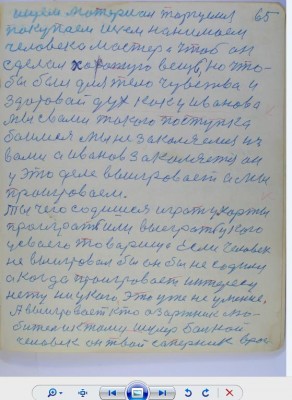 65
ищем материал торгуемся
покупаем шьем нанимаем
человека мастера чтоб он
сделал хорошую вещь, но что-
бы был для тело чувства и
здоровой дух как у иванова
мы с вами такого поступка
боимся мы не закаляемся
вами а иванов закаляется он
у это деле выигровает а мы
проигроваем.
Ты чего содишся играть у карты
проиграть или выиграть у кого
у своего товарища Если человек
не выигровал бы он бы не содился
а когда проигровает интересу
нету ни у кого, это уже не уменее.
А выигровает кто азартник лю-
битель к тому шулер банкой
человек он твой саперник враг